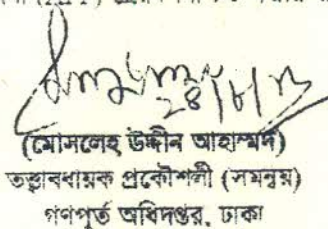 ২৪/৮/১৭
(মোসলেহ উদ্দীন আহাম্মদ)
তত্ত্বাবধায়ক প্রকৌশলী (সমন্বয়)
গণপূর্ত অধিদপ্তর, ঢাকা